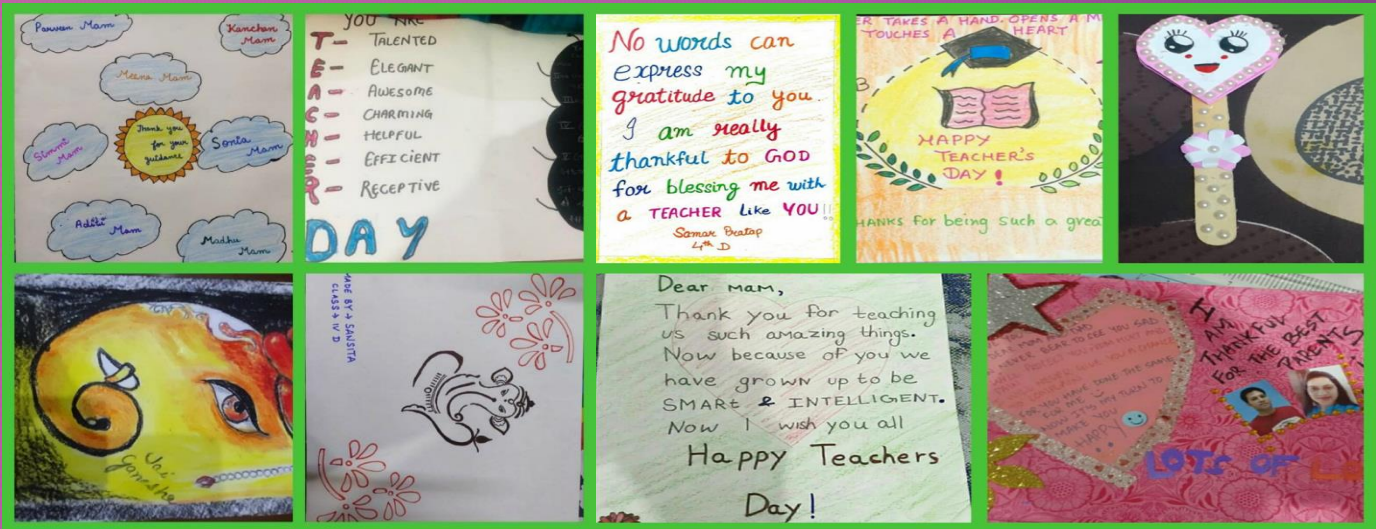 Parwan Mam
Kanchan Mam
Meena Mam
Thank you
for your
guidance
Simmi
Mam
Sonia
Mam
Aditi
Mam
Madhu
Mam
YOU ARE
T- TALENTED
E- ELEGANT
A- AWESOME
C- CHARMING
H- HELPFUL
E- EFFICIENT
R- RECEPTIVE
DAY
No words can
express my
gratitude to you
I am really
thankful to GOD
for blessing me with
a TEACHER Like YOU!!
Samar Pratap
4th D
ER TAKES A HAND. OPENS A M
TOUCHES A HEART
HAPPY
TEACHER'S
DAY!
HANKS for being such a grea
Jai
Ganesha
MADE BY → SANSITA
CLASS → IV D
Dear MAM,
Thank you for teaching
us such amazing things.
Now because of you we
have grown up to be
SMARt & INTELLIGENT.
Now I wish you all
Happy Teachers
Day!
DEAR MUM AND DAD
NEVER FEAR TO SEE YOU SAD
FOR YOU HAVE DONE THE SAME
FOR ME
NOW IT'S MY TURN TO
MAKE YOU
HAPPY
I
AM
THANKFUL
FOR THE BEST
PARENTS
LOTS OF